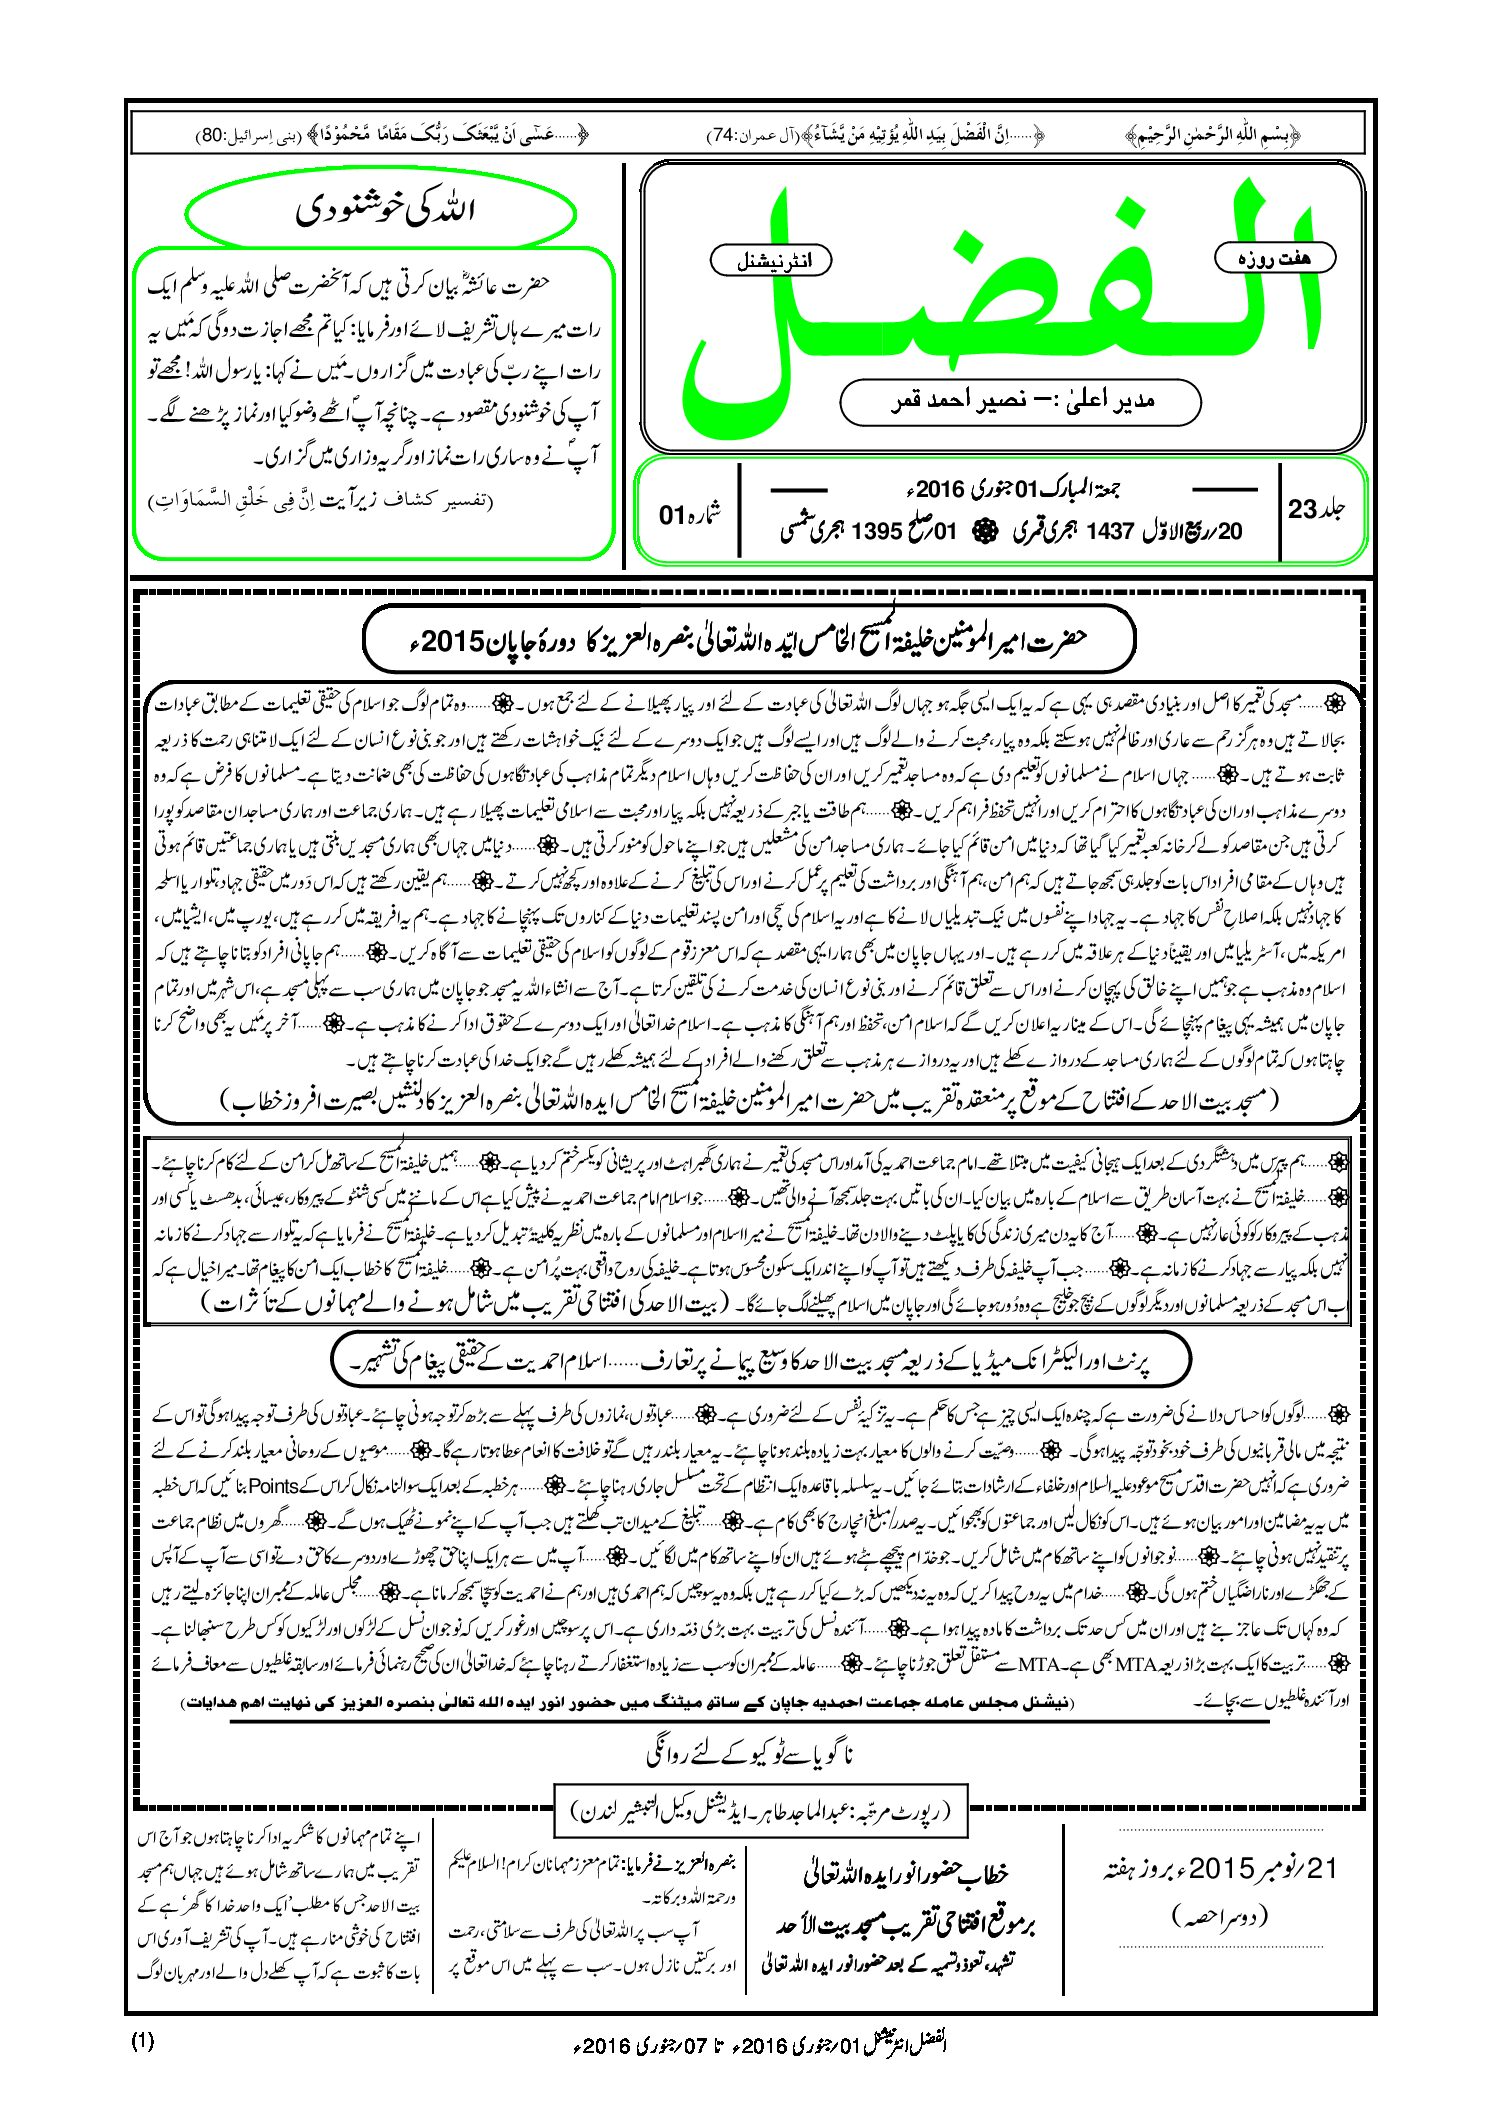 ﴿بِسْمِ اللّٰهِ الرَّحْمٰنِ الرَّحِيْمِ﴾
﴿……اِنَّ الْفَضْلَ بِيَدِ اللّٰهِ يُؤْتِيْهِ مَنْ يَّشَآءُ﴾ (آل عمران:74)
﴿……عَسٰٓى اَنْ يَّبْعَثَكَ رَبُّكَ مَقَامًا مَّحْمُوْدًا﴾ (بنی اِسرائیل:80)
الفضل
ہفت روزہ
انٹرنیشنل
مدیر اعلیٰ :– نصیر احمد قمر
جلد 23
جمعۃ المبارک 01 جنوری 2016ء
20؍ربیع الاوّل 1437 ہجری قمری ۞ 01؍صلح 1395 ہجری شمسی
شمارہ 01
اللہ کی خوشنودی
حضرت عائشہؓ بیان کرتی ہیں کہ آنحضرت صلی اللہ علیہ وسلم ایک
رات میرے ہاں تشریف لائے اور فرمایا: کیا تم مجھے اجازت دو گی کہ مَیں یہ
رات اپنے ربّ کی عبادت میں گزاروں۔ مَیں نے کہا: یا رسول اللہ! مجھے تو
آپ کی خوشنودی مقصود ہے۔ چنانچہ آپؐ اٹھے وضو کیا اور نماز پڑھنے لگے۔
آپؐ نے وہ ساری رات نماز اور گریہ وزاری میں گزاری۔
(تفسیر کشاف زیر آیت اِنَّ فِی خَلْقِ السَّمَاوَاتِ)
حضرت امیر المومنین خلیفۃ المسیح الخامس ایّدہ اللہ تعالیٰ بنصرہ العزیز کا دورۂ جاپان 2015ء
۞……مسجد کی تعمیر کا اصل اور بنیادی مقصد ہی یہی ہے کہ یہ ایک ایسی جگہ ہو جہاں لوگ اللہ تعالیٰ کی عبادت کے لئے اور پیار پھیلانے کے لئے جمع ہوں۔ ۞……وہ تمام لوگ جو اسلام کی حقیقی تعلیمات کے مطابق عبادات
بجالاتے ہیں وہ ہرگز رحم سے عاری اور ظالم نہیں ہوسکتے بلکہ وہ پیار، محبت کرنے والے لوگ ہیں اور ایسے لوگ ہیں جو ایک دوسرے کے لئے نیک خواہشات رکھتے ہیں اور جو بنی نوع انسان کے لئے ایک لامتناہی رحمت کا ذریعہ
ثابت ہوتے ہیں۔ ۞……جہاں اسلام نے مسلمانوں کو تعلیم دی ہے کہ وہ مساجد تعمیر کریں اور ان کی حفاظت کریں وہاں اسلام دیگر تمام مذاہب کی عبادتگاہوں کی حفاظت کی بھی ضمانت دیتا ہے۔ مسلمانوں کا فرض ہے کہ وہ
دوسرے مذاہب اور ان کی عبادتگاہوں کا احترام کریں اور انہیں تحفظ فراہم کریں۔ ۞……ہم طاقت یا جبر کے ذریعہ نہیں بلکہ پیار اور محبت سے اسلامی تعلیمات پھیلا رہے ہیں۔ ہماری جماعت اور ہماری مساجد ان مقاصد کو پورا
کرتی ہیں جن مقاصد کو لے کر خانہ کعبہ تعمیر کیا گیا تھا کہ دنیا میں امن قائم کیا جائے۔ ہماری مساجد امن کی مشعلیں ہیں جو اپنے ماحول کو منور کرتی ہیں۔ ۞……دنیا میں جہاں بھی ہماری مسجدیں بنتی ہیں یا ہماری جماعتیں قائم ہوتی
ہیں وہاں کے مقامی افراد اس بات کو جلد ہی سمجھ جاتے ہیں کہ ہم امن، ہم آہنگی اور برداشت کی تعلیم پر عمل کرنے اور اس کی تبلیغ کرنے کے علاوہ اور کچھ نہیں کرتے۔ ۞……ہم یقین رکھتے ہیں کہ اس دَور میں حقیقی جہاد تلوار یا اسلحہ
کا جہاد نہیں بلکہ اصلاحِ نفس کا جہاد ہے۔ یہ جہاد اپنے نفسوں میں نیک تبدیلیاں لانے کا ہے اور یہ اسلام کی سچی اور امن پسند تعلیمات دنیا کے کناروں تک پہنچانے کا جہاد ہے۔ ہم یہ افریقہ میں کر رہے ہیں، یورپ میں، ایشیا میں،
امریکہ میں، آسٹریلیا میں اور یقیناً دنیا کے ہر علاقہ میں کر رہے ہیں۔ اور یہاں جاپان میں بھی ہمارا یہی مقصد ہے کہ اس معزز قوم کے لوگوں کو اسلام کی حقیقی تعلیمات سے آگاہ کریں۔ ۞……ہم جاپانی افراد کو بتانا چاہتے ہیں کہ
اسلام وہ مذہب ہے جو ہمیں اپنے خالق کی پہچان کرنے اور اس سے تعلق قائم کرنے اور بنی نوع انسان کی خدمت کرنے کی تلقین کرتا ہے۔ آج سے انشاء اللہ یہ مسجد جو جاپان میں ہماری سب سے پہلی مسجد ہے، اس شہر میں اور تمام
جاپان میں ہمیشہ یہی پیغام پہنچائے گی۔ اس کے مینار یہ اعلان کریں گے کہ اسلام امن، تحفظ اور ہم آہنگی کا مذہب ہے۔ اسلام خدا تعالیٰ اور ایک دوسرے کے حقوق ادا کرنے کا مذہب ہے۔ ۞……آخر پر مَیں یہ بھی واضح کرنا
چاہتا ہوں کہ تمام لوگوں کے لئے ہماری مساجد کے دروازے کھلے ہیں اور یہ دروازے ہر مذہب سے تعلق رکھنے والے افراد کے لئے ہمیشہ کھلے رہیں گے جو ایک خدا کی عبادت کرنا چاہتے ہیں۔
(مسجد بیت الاحد کے افتتاح کے موقع پر منعقدہ تقریب میں حضرت امیر المومنین خلیفۃ المسیح الخامس ایدہ اللہ تعالیٰ بنصرہ العزیز کا دلنشیں بصیرت افروز خطاب)
۞……ہم پیرس میں دہشتگردی کے بعد ایک ہیجانی کیفیت میں مبتلا تھے۔ امام جماعت احمدیہ کی آمد اور اس مسجد کی تعمیر نے ہماری گھبراہٹ اور پریشانی کو یکسر ختم کر دیا ہے۔ ۞……ہمیں خلیفۃ المسیح کے ساتھ مل کر امن کے لئے کام کرنا چاہئے۔
۞……خلیفۃ المسیح نے بہت آسان طریق سے اسلام کے بارہ میں بیان کیا۔ ان کی باتیں بہت جلد سمجھ آنے والی تھیں۔ ۞……جو اسلام امام جماعت احمدیہ نے پیش کیا ہے اس کے ماننے میں کسی شنٹو کے پیروکار، عیسائی، بدھسٹ یا کسی اور
مذہب کے پیروکار کو کوئی عار نہیں ہے۔ ۞……آج کا یہ دن میری زندگی کی کایا پلٹ دینے والا دن تھا۔ خلیفۃ المسیح نے میرا اسلام اور مسلمانوں کے بارہ میں نظریہ کلیۃً تبدیل کر دیا ہے۔ خلیفۃ المسیح نے فرمایا ہے کہ یہ تلوار سے جہاد کرنے کا زمانہ
نہیں بلکہ پیار سے جہاد کرنے کا زمانہ ہے۔ ۞……جب آپ خلیفہ کی طرف دیکھتے ہیں تو آپ کو اپنے اندر ایک سکون محسوس ہوتا ہے۔ خلیفہ کی روح واقعی بہت پُر امن ہے۔ ۞……خلیفۃ المسیح کا خطاب ایک امن کا پیغام تھا۔ میرا خیال ہے کہ
اب اس مسجد کے ذریعہ مسلمانوں اور دیگر لوگوں کے بیچ جو خلیج ہے وہ دُور ہو جائے گی اور جاپان میں اسلام پھیلنے لگ جائے گا۔ (بیت الاحد کی افتتاحی تقریب میں شامل ہونے والے مہمانوں کے تأثرات)
پرنٹ اور الیکٹرانک میڈیا کے ذریعہ مسجد بیت الاحد کا وسیع پیمانے پر تعارف……اسلام احمدیت کے حقیقی پیغام کی تشہیر۔
۞……لوگوں کو احساس دلانے کی ضرورت ہے کہ چندہ ایک ایسی چیز ہے جس کا حکم ہے۔ یہ تزکیۂ نفس کے لئے ضروری ہے۔ ۞……عبادتوں، نمازوں کی طرف پہلے سے بڑھ کر توجہ ہونی چاہئے۔ عبادتوں کی طرف توجہ پیدا ہوگی تو اس کے
نتیجہ میں مالی قربانیوں کی طرف خود بخود توجّہ پیدا ہوگی۔ ۞……وصیّت کرنے والوں کا معیار بہت زیادہ بلند ہونا چاہئے۔ یہ معیار بلند رہیں گے تو خلافت کا انعام عطا ہوتا رہے گا۔ ۞……موصیوں کے روحانی معیار بلند کرنے کے لئے
ضروری ہے کہ انہیں حضرت اقدس مسیح موعود علیہ السلام اور خلفاء کے ارشادات بتائے جائیں۔ یہ سلسلہ باقاعدہ ایک انتظام کے تحت مسلسل جاری رہنا چاہئے۔ ۞……ہر خطبہ کے بعد ایک سوالنامہ نکال کر اس کے Points بنائیں کہ اس خطبہ
میں یہ یہ مضامین اور امور بیان ہوئے ہیں۔ اس کو نکال لیں اور جماعتوں کو بھجوائیں۔ یہ صدر؍مبلغ انچارج کا بھی کام ہے۔ ۞……تبلیغ کے میدان تب کھلتے ہیں جب آپ کے اپنے نمونے ٹھیک ہوں گے۔ ۞……گھروں میں نظام جماعت
پر تنقید نہیں ہونی چاہئے۔ ۞……نوجوانوں کو اپنے ساتھ کام میں شامل کریں۔ جو خدّام پیچھے ہٹے ہوئے ہیں ان کو اپنے ساتھ کام میں لگائیں۔ ۞……آپ میں سے ہر ایک اپنا حق چھوڑے اور دوسرے کا حق دے تو اسی سے آپ کے آپس
کے جھگڑے اور ناراضگیاں ختم ہوں گی۔ ۞……خدام میں یہ روح پیدا کریں کہ وہ یہ نہ دیکھیں کہ بڑے کیا کر رہے ہیں بلکہ وہ یہ سوچیں کہ ہم احمدی ہیں اور ہم نے احمدیت کو سچا سمجھ کر مانا ہے۔ ۞……مجلس عاملہ کے ممبران اپنا جائزہ لیتے رہیں
کہ وہ کہاں تک عاجز بنے ہیں اور ان میں کس حد تک برداشت کا مادہ پیدا ہوا ہے۔ ۞……آئندہ نسل کی تربیت بہت بڑی ذمّہ داری ہے۔ اس پر سوچیں اور غور کریں کہ نوجوان نسل کے لڑکوں اور لڑکیوں کو کس طرح سنبھالنا ہے۔
۞……تربیت کا ایک بہت بڑا ذریعہ MTA بھی ہے۔ MTA سے مستقل تعلق جوڑنا چاہئے۔ ۞……عاملہ کے ممبران کو سب سے زیادہ استغفار کرتے رہنا چاہئے کہ خدا تعالیٰ ان کی صحیح رہنمائی فرمائے اور سابقہ غلطیوں سے معاف فرمائے
اور آئندہ غلطیوں سے بچائے۔ (نیشنل مجلس عاملہ جماعت احمدیہ جاپان کے ساتھ میٹنگ میں حضور انور ایدہ اللہ تعالیٰ بنصرہ العزیز کی نہایت اہم ہدایات)
ناگویا سے ٹوکیو کے لئے روانگی
(رپورٹ مرتّبہ: عبد الماجد طاہر۔ ایڈیشنل وکیل التبشیر لندن)
21؍نومبر 2015ء بروز ہفتہ
(دوسرا حصہ)
خطاب حضور انور ایدہ اللہ تعالیٰ
بر موقع افتتاحی تقریب مسجد بیت الأحد
تشہد، تعوذ و تسمیہ کے بعد حضور انور ایدہ اللہ تعالیٰ
بنصرہ العزیز نے فرمایا: تمام معزز مہمانان کرام! السلام علیکم
ورحمۃ اللہ وبرکاتہ۔
آپ سب پر اللہ تعالیٰ کی طرف سے سلامتی، رحمت
اور برکتیں نازل ہوں۔ سب سے پہلے میں اس موقع پر
اپنے تمام مہمانوں کا شکریہ ادا کرنا چاہتا ہوں جو آج اس
تقریب میں ہمارے ساتھ شامل ہوئے ہیں جہاں ہم مسجد
بیت الاحد جس کا مطلب 'ایک واحد خدا کا گھر' ہے کے
افتتاح کی خوشی منا رہے ہیں۔ آپ کی تشریف آوری اس
بات کا ثبوت ہے کہ آپ کھلے دل والے اور مہربان لوگ
الفضل انٹرنیشنل 01؍جنوری 2016ء تا 07؍جنوری 2016ء
(1)